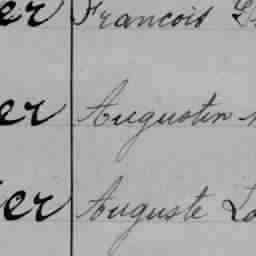 er Francois
er Augustin
er Auguste